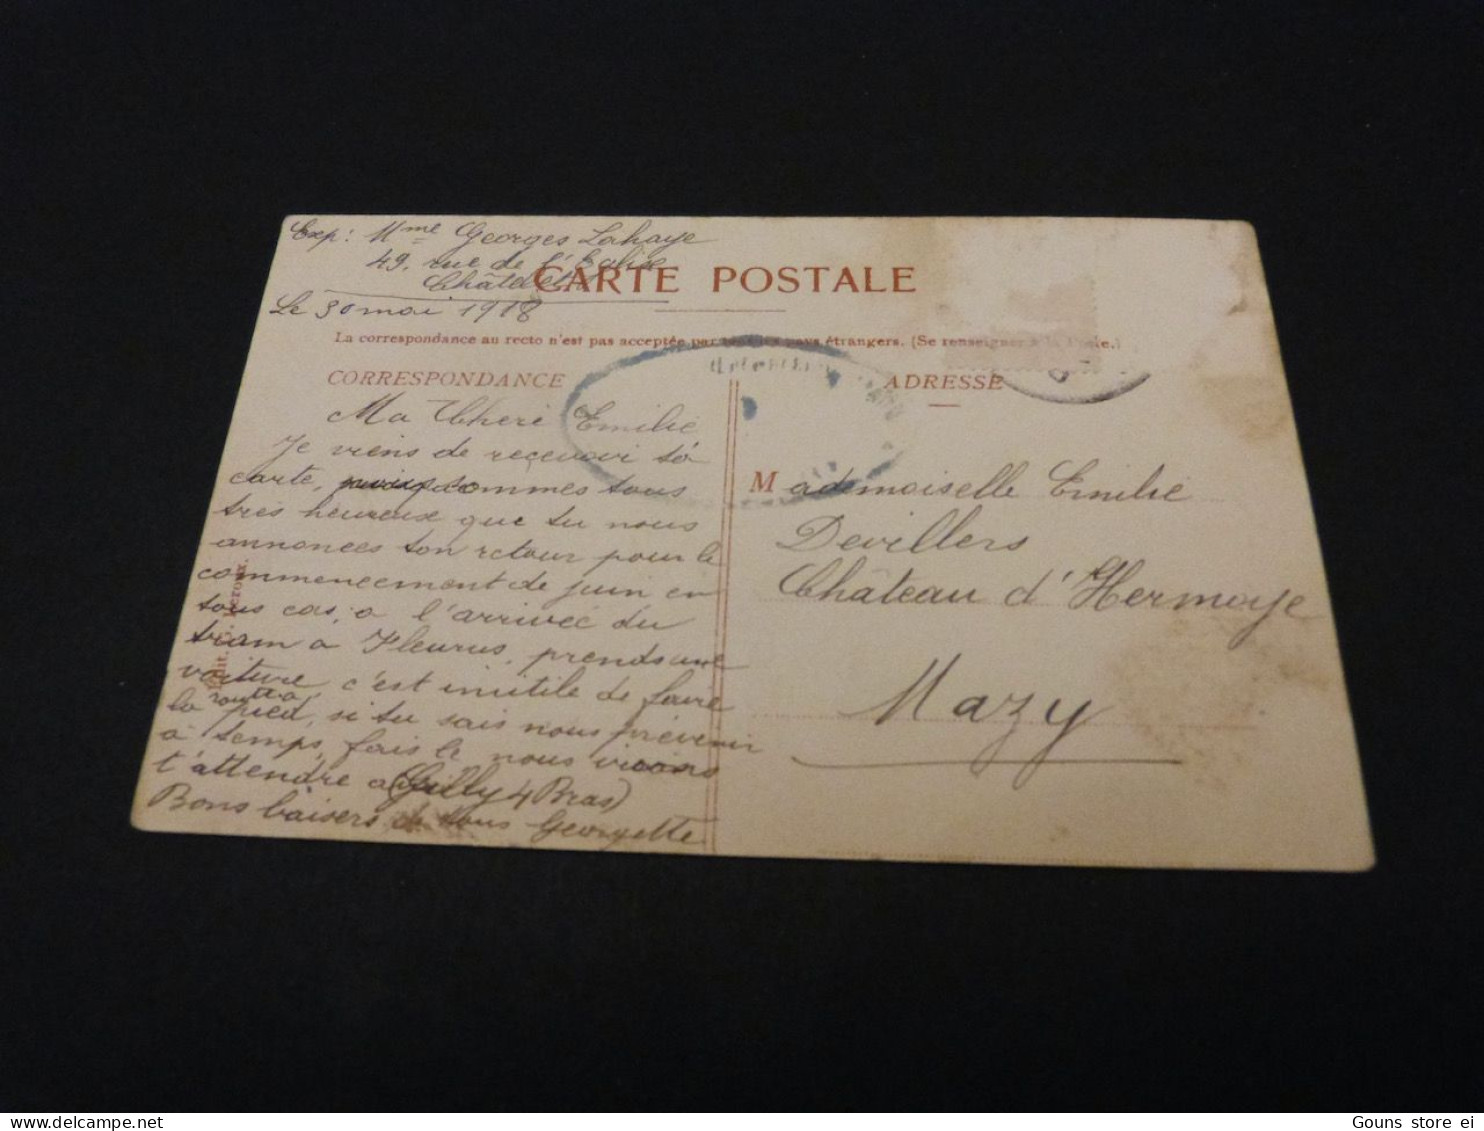 Exp: Mme Georges Lahaye
49, rue de l'Eglise
Châtelet
Le 30 mai 1918
CARTE POSTALE
La correspondance au recto n'est pas acceptée par tous les pays étrangers. (Se renseigner à la Poste.)
CORRESPONDANCE
Ma Cheré Emilie
Je viens de recevoir ta
carte, sommes tous
très heureux que tu nous
annonces ton retour pour le
commencement de juin en
tous cas, a l'arrivée du
tram a Fleurus, prends une
voiture, c'est inutile de faire
la route a pied, si tu sais nous prévenir
a temps, fais le nous irions
t'attendre a (Gilly 4 Bras)
Bons baisers de tous Georgette
ADRESSE
Mademoiselle Emilie
Devillers
Château d'Hermoye
Mazy
Edit.
Gouns store ei